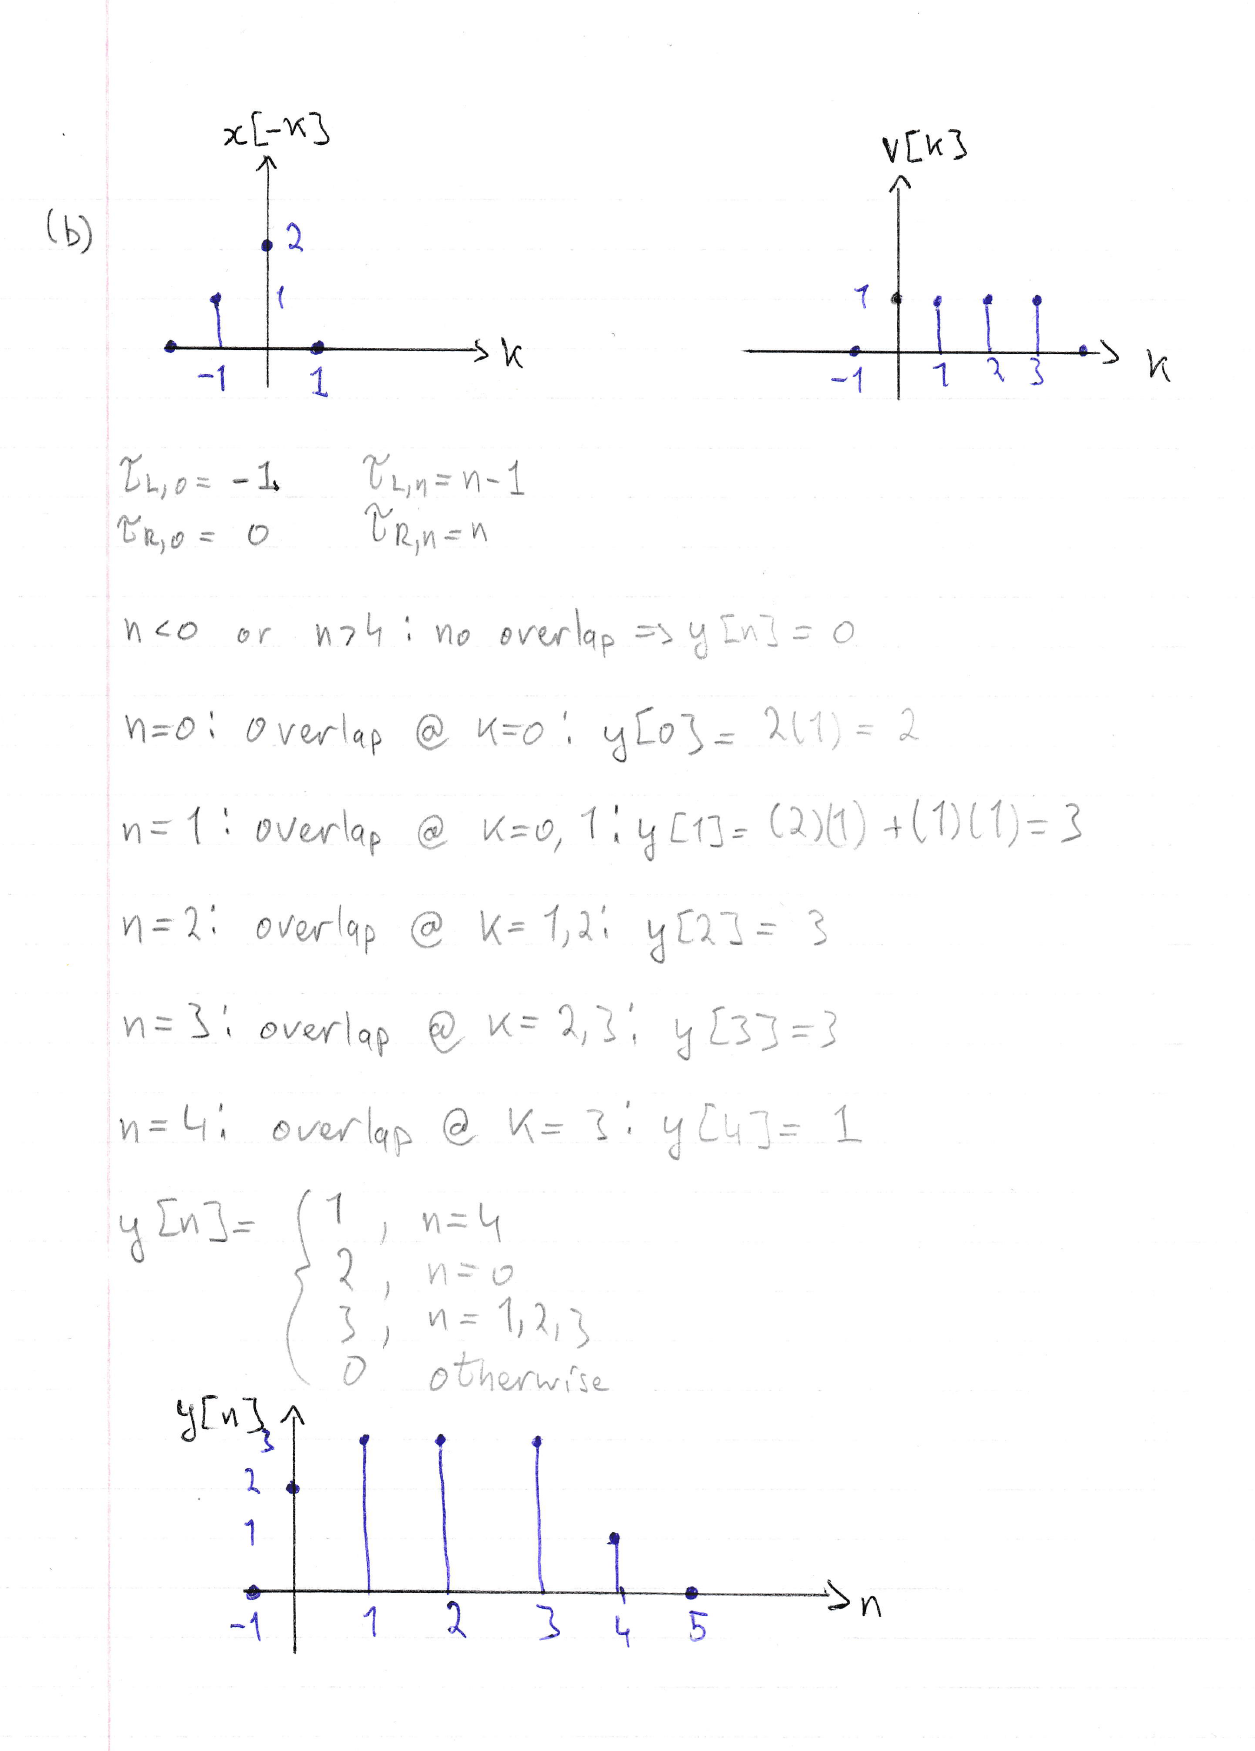 x[-k]
v[k]
(b)
2
1
1
k
-1
1
k
-1
1
2
3
τL,0 = -1 τL,n = n-1
τR,0 = 0 τR,n = n
n<0 or n>4 : no overlap => y[n] = 0
n=0 : overlap @ k=0 : y[0] = 2(1) = 2
n=1 : overlap @ k=0,1 : y[1] = (2)(1) + (1)(1) = 3
n=2 : overlap @ k=1,2 : y[2] = 3
n=3 : overlap @ k=2,3 : y[3] = 3
n=4 : overlap @ k=3 : y[4] = 1
y[n] = { 1 , n=4
2 , n=0
3 , n=1,2,3
0 otherwise
y[n]
3
2
1
n
-1 1 2 3 4 5